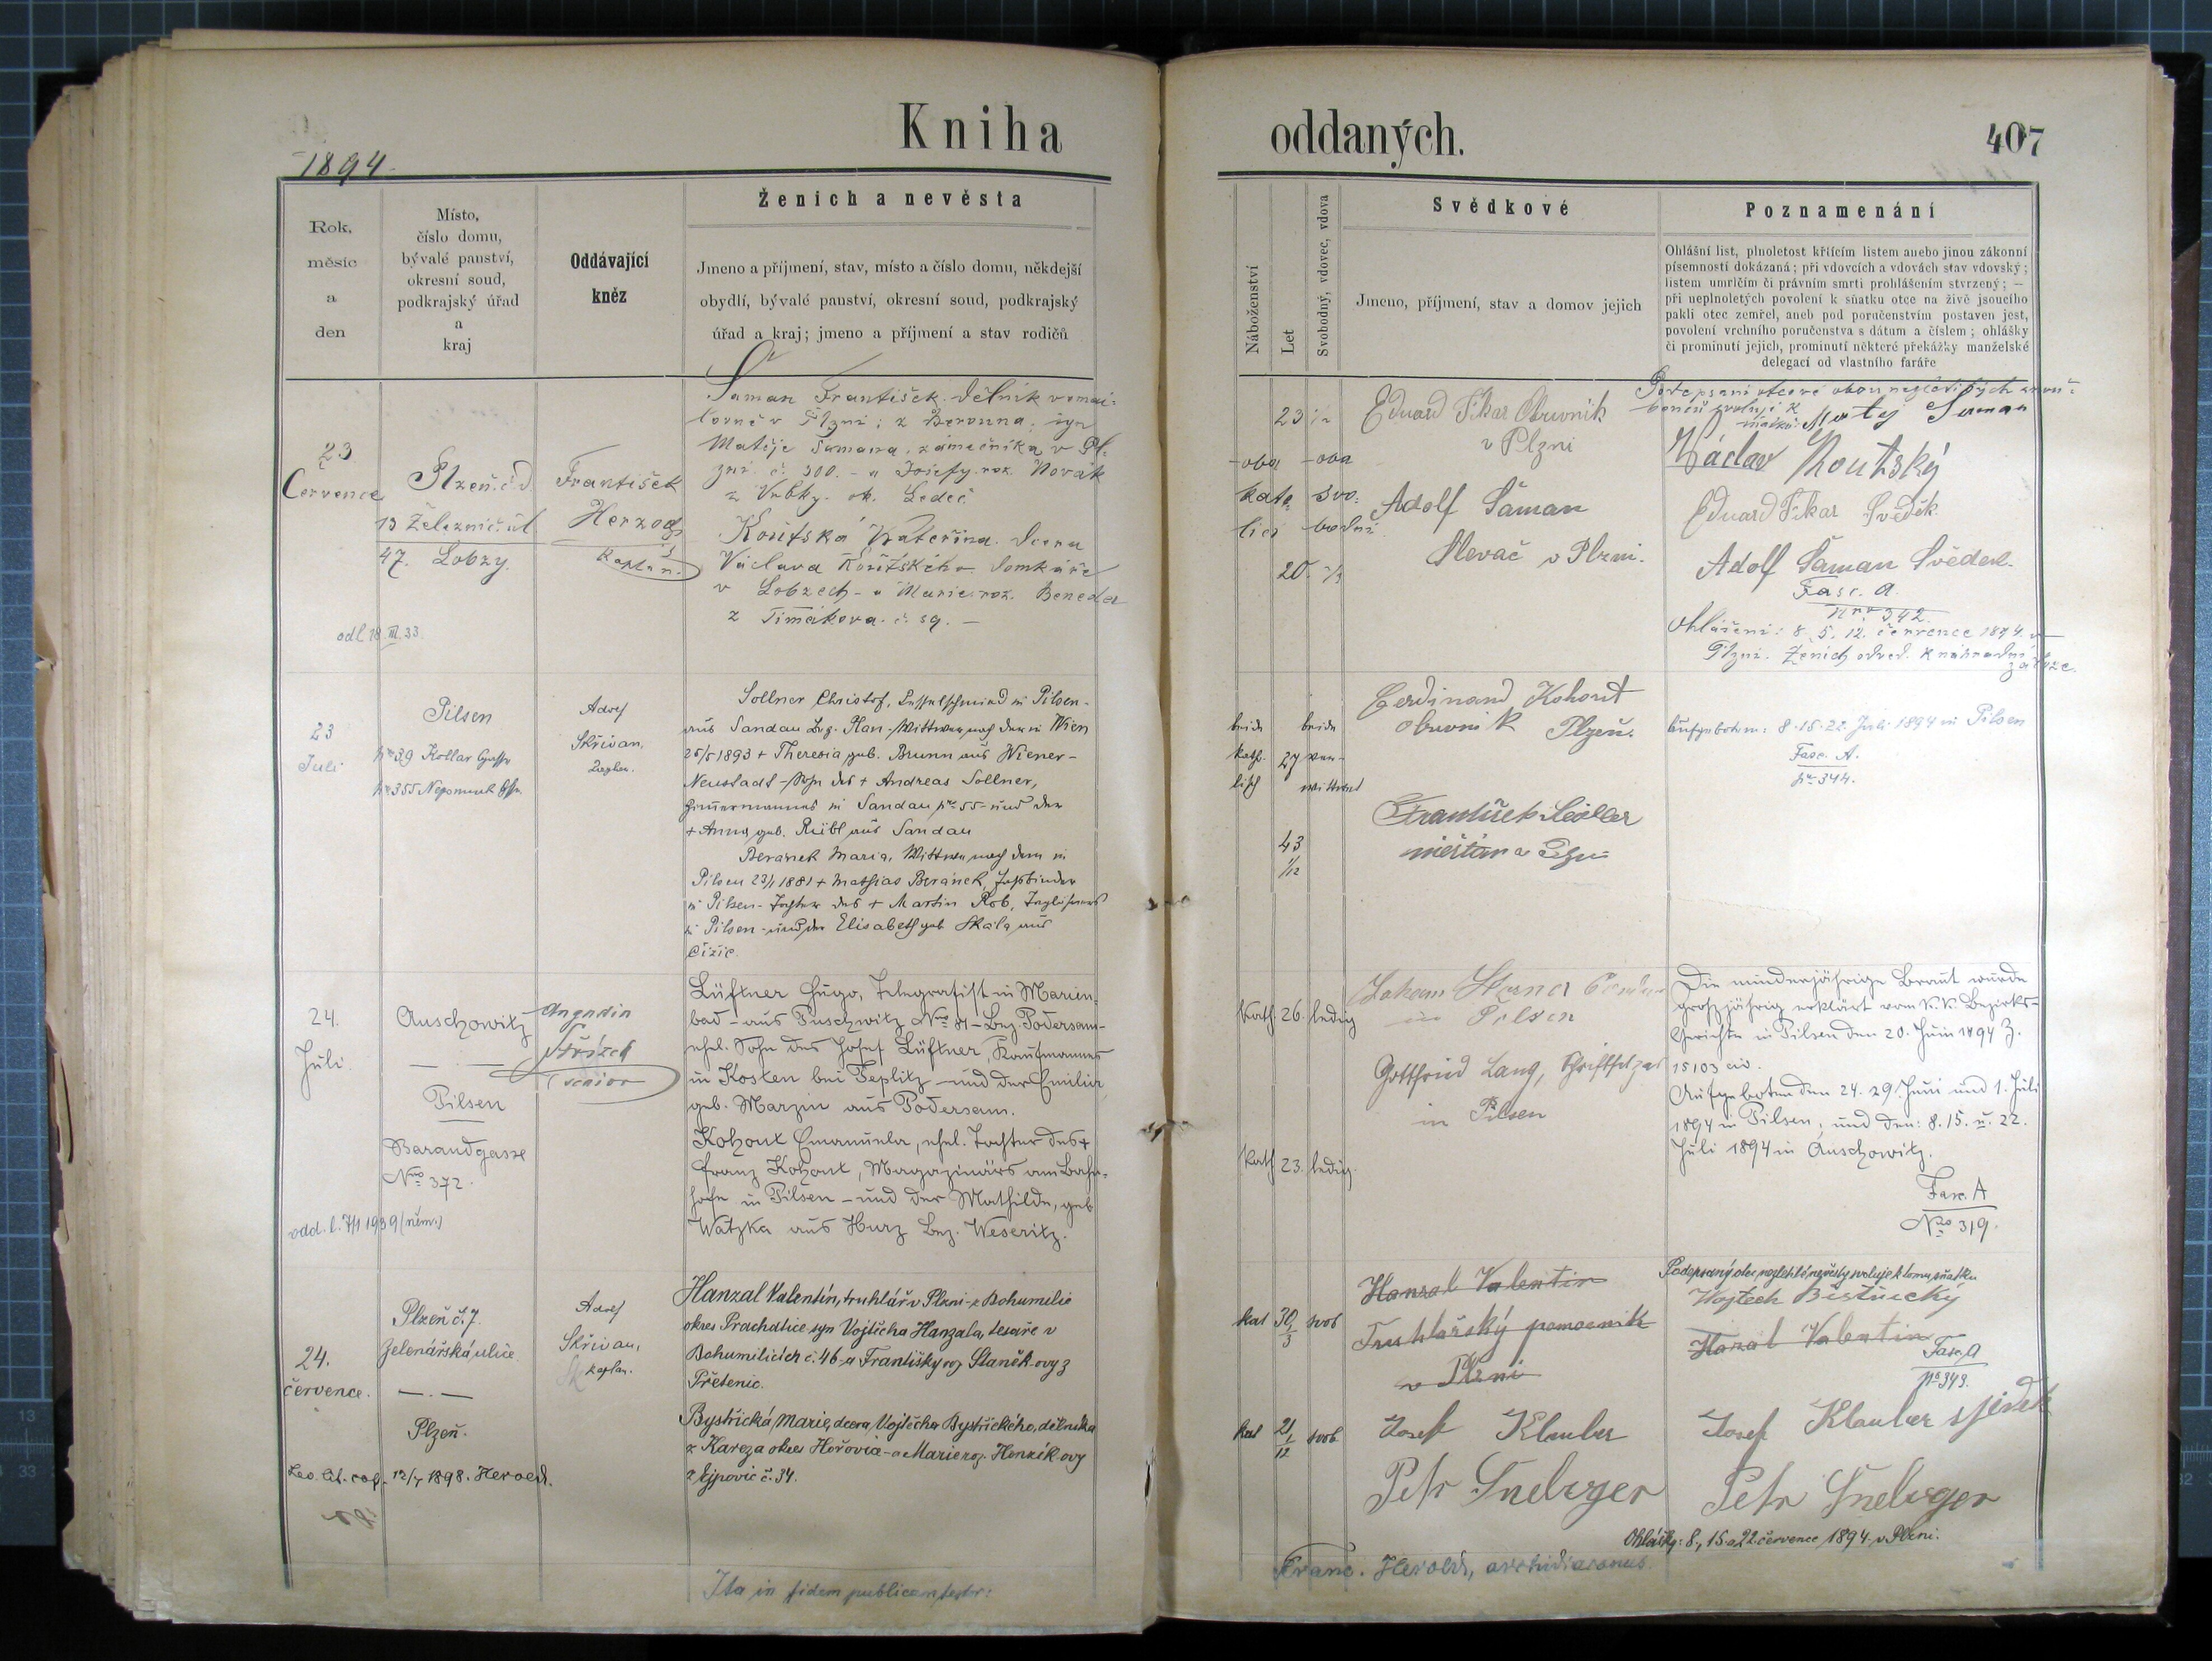 Kniha
oddaných.
407
1894
Rok,
měsíc
a
den
Místo,
číslo domu,
bývalé panství,
okresní soud,
podkrajský úřad
a
kraj
Oddávající
kněz
Ženich a nevěsta
Jmeno a příjmení, stav, místo a číslo domu, někdejší
obydlí, bývalé panství, okresní soud, podkrajský
úřad a kraj; jmeno a příjmení a stav rodičů
Náboženství
Let
Svobodný, vdovec, vdova
Svědkové
Jmeno, příjmení, stav a domov jejich
Poznamenání
Ohlášní list, plnoletost křtícím listem aneb jinou zákonní
písemností dokázaná; při vdovcích a vdovách stav vdovský;
listem umrlčím či právním smrti prohlášením stvrzený; —
při neplnoletých povolení k sňatku otce na živě jsoucího
pakli otec zemřel, aneb pod poručenstvím postaven jest,
povolení vrchního poručenstva s dátum a číslem; ohlášky
či prominutí jejich, prominutí některé překážky manželské
delegací od vlastního faráře
23
Července
Plzeň. č. d.
13 Železnič. ul.
47. Lobzy.
odl 18. III. 33.
František
Herzog
kaplan.
Šaman František. Dělník
v Plzni; z Berouna, syn
Matěje Šamana, zámečníka v Pl-
zni č. 300. - a Josefy roz. Novák
z Vrbky. ok. Ledeč
Koutská Kateřina. dcera
Václava Koutského. Domkáře
v Lobzech - a Marie roz. Beneda
z Timákova. č. 59. —
oba
kato-
líci
23
20.
oba
svo-
bodní
Eduard Fikar Obuvník
v Plzni
Adolf Šaman
Slevač v Plzni.
Matěj Šaman
Václav Koutský
Eduard Fikar Svědek
Adolf Šaman Svědek.
Fasc. A.
Nro 342.
Ohlášeni: 8. 5. 12. července 1894. v
Plzni. Ženich odved. k náhradní
záloze.
23
Juli
Pilsen
No 39 Kollar Gasse
No 355 Nepomuk Gße.
Adolf
Skřivan,
Kaplan.
Sollner Christof, Kesselschmied in Pilsen -
aus Sandau Bez. Plan - Wittwer nach der in Wien
25/5 1893 + Theresia geb. Brunn aus Wiener-
Neustadt - Sohn des + Andreas Sollner,
Zimmermannes in Sandau No 55 - und der
+ Anna geb. Reibl aus Sandau
Beranek Maria, Wittwe nach dem in
Pilsen 23/1 1881 + Mathias Beranek, Faßbinder
in Pilsen - Tochter des + Martin Rob, Taglöhners
in Pilsen - und der Elisabeth geb. Skala aus
Čižic.
beide
katho-
lisch
27
43
1/12
beide
ver-
wittwet
Ferdinand Kohout
obuvník Plzeň.
František
měšťan v Plzni
Aufgeboten: 8. 15. 22. Juli 1894 in Pilsen
Fasc. A.
No 344.
24.
Juli
Auschowitz
Pilsen
Barandgasse
Nro 372.
odd. l. 7/1 1939 (něm.)
senior
Lüftner Hugo, Telegrafist in Marien-
bad - aus Puschwitz Nro 81 - Bez. Podersam -
ehel. Sohn des Josef Lüftner, Kaufmannes
in Kosten bei Teplitz - und der Emilie,
geb. Marzin aus Podersam.
Kohout Emanuela, ehel. Tochter des +
Franz Kohout, Magazinärs am Bahn-
hofe in Pilsen - und der Mathilde, geb.
Watzka aus Hurz Bez. Weseritz.
Kath. 26. ledig
Kath. 23. ledig.
in Pilsen
Gottfried Lang, Schriftsetzer
in Pilsen
Die minderjährige Braut wurde
großjährig erklärt vom K. K. Bezirks-
Gerichte in Pilsen den 20. Juni 1894 Z.
15103 civ.
Aufgeboten den 24. 29. Juni und 1. Juli
1894 in Pilsen, und den: 8. 15. u. 22.
Juli 1894 in Auschowitz.
Fasc. A
Nro 319.
24.
července.
Plzeň č. 7.
Zelenářská ulice.
Plzeň.
Leo. lit. cop. 12/5 1898. Herold.
Adolf
Skřivan,
kaplan.
Hanzal Valentín, truhlář v Plzni - z Bohumilic
okres Prachatice syn Vojtěcha Hanzala, tesaře v
Bohumilicích č. 46 - a Františky roz. Staněk-ovy z
Přetenic.
Bystřická Marie, dcera Vojtěcha Bystřického, dělníka
z Kareza okres Hořovic - a Marie roz. Honzík-ovy
z Ejpovic č. 34.
kat 30 3 svob
kat 21 12 svob
Hanzal Valentin
Truhlářský pomocník
v Plzni
Josef Klauber
Petr Šneberger
Podepsaný otec nezletilé nevěsty svoluje k tomu sňatku
Wojtech Bistřický
Hanzal Valentin
Fasc. A
No 343.
Josef Klauber svjedek
Petr Šneberger
Ohlášky: 8., 15. a 22. července 1894. v Plzni.
Ita in fidem publicam testor:
Franc. Herold, archidiaconus.